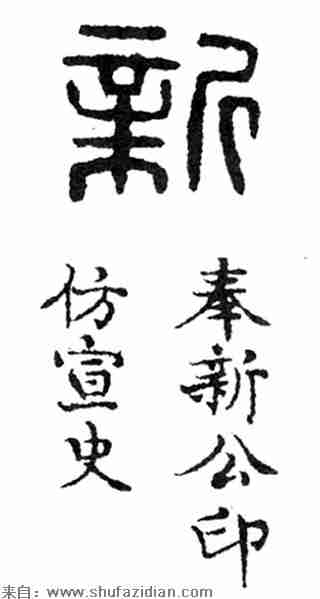 新
奉新公印
仿宣史
来自：www.shufazidian.com